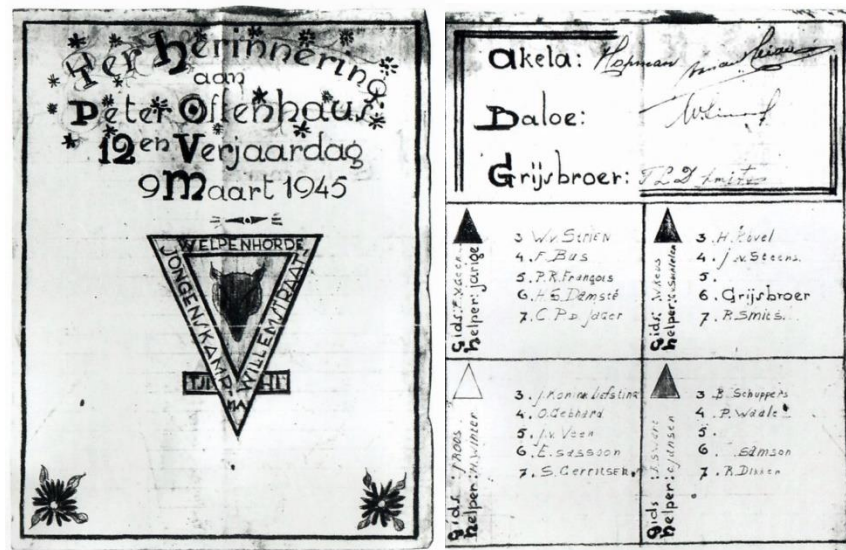 Ter herinnering
aan
Peter Ostenhaus
12en Verjaardag
9 Maart 1945
WELPENHORDE
JONGENSKAMP
WILLEMSTRAAT-
Akela: Hopman
Baloe:
Grijsbroer:
Gids:
helper: jarige
3 W.v. Strien
4. F. Bus
5. P.R. François
6. H.S. Damsté
7. C.P.D. Jager
Gids:
helper:
3. H.
4. J.v. Steens.
5.
6. Grijsbroer
7. R. Smies.
gids: J ROOS
helper: H. Winter
3. J. Konink Liefsting
4. O. Gebhard
5. J.v. Veen
6. E. Sassoon
7. S. Gerritsen
gids:
helper: C Jansen
3. B. Schuppers
4. P. Waale
5.
6. Samson
7. R. Dikken